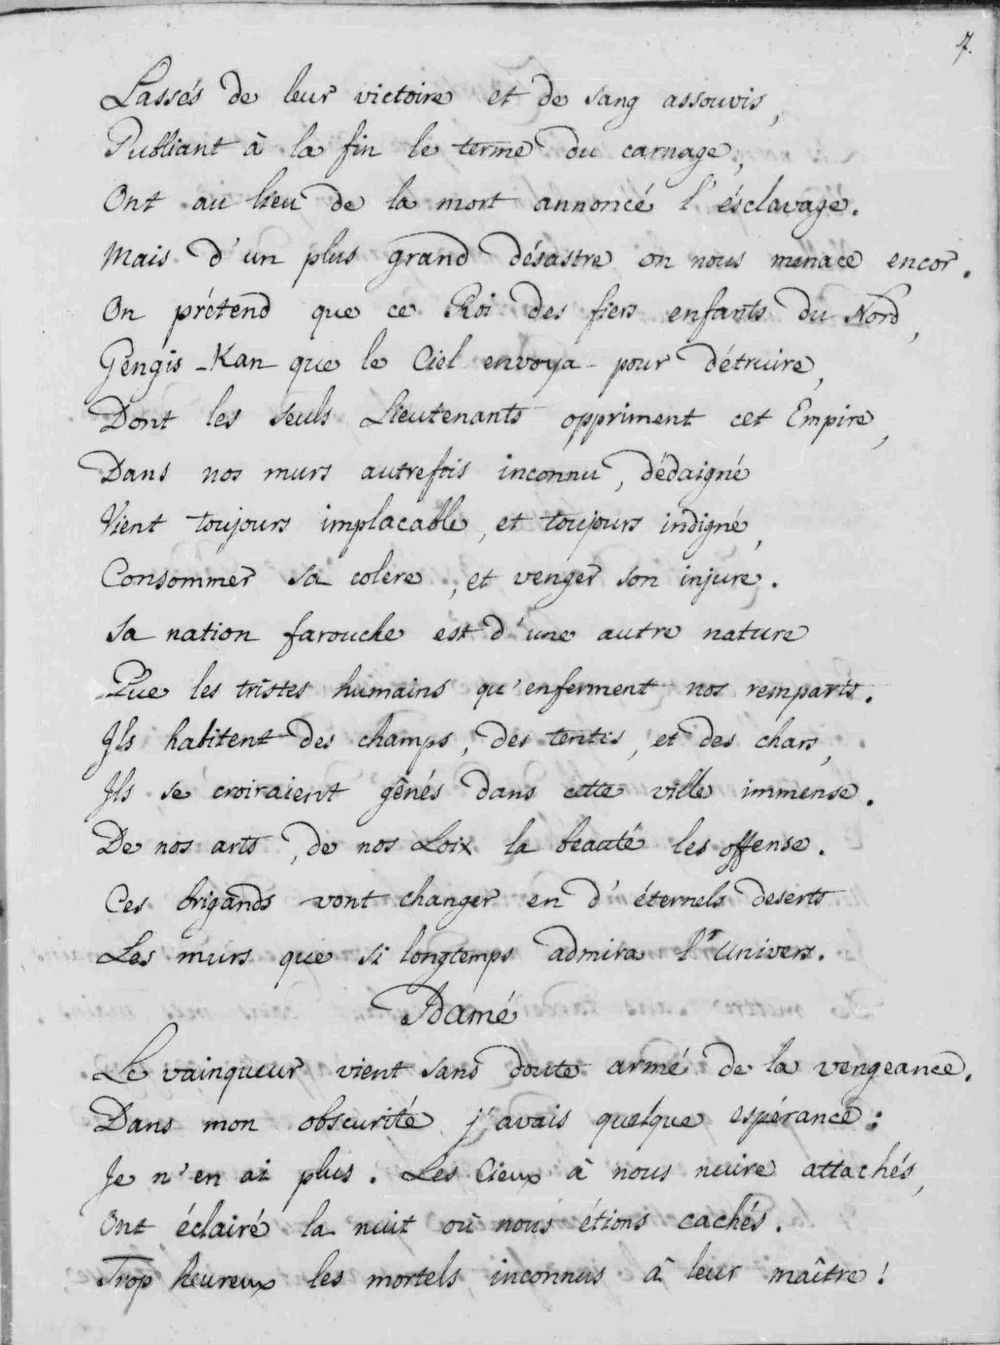 7.
Lassés de leur victoire et de sang assouvis,
Publiant à la fin le terme du carnage,
Ont au lieu de la mort annoncé l'ésclavage.
Mais d'un plus grand désastre on nous menace encor.
On prétend que ce Roi des fiers enfants du Nord,
Gengis-Kan que le Ciel envoya pour détruire,
Dont les seuls Lieutenants oppriment cet Empire,
Dans nos murs autrefois inconnu, dédaigné
Vient toujours implacable, et toujours indigné,
Consommer sa colere, et venger son injure.
Sa nation farouche est d'une autre nature
Que les tristes humains qu'enferment nos remparts.
Ils habitent des champs, des tentes, et des chars,
Ils se croiraient gênés dans cette ville immense.
De nos arts, de nos Loix la beauté les offense.
Ces brigands vont changer en d'éternels deserts
Les murs que si longtemps admira l'Univers.
Idamé
Le vainqueur vient sans doute armé de la vengeance.
Dans mon obscurité j'avais quelque espérance:
Je n'en ai plus. Les Cieux à nous nuire attachés,
Ont éclairé la nuit où nous étions cachés.
Trop heureux les mortels inconnus à leur maître!